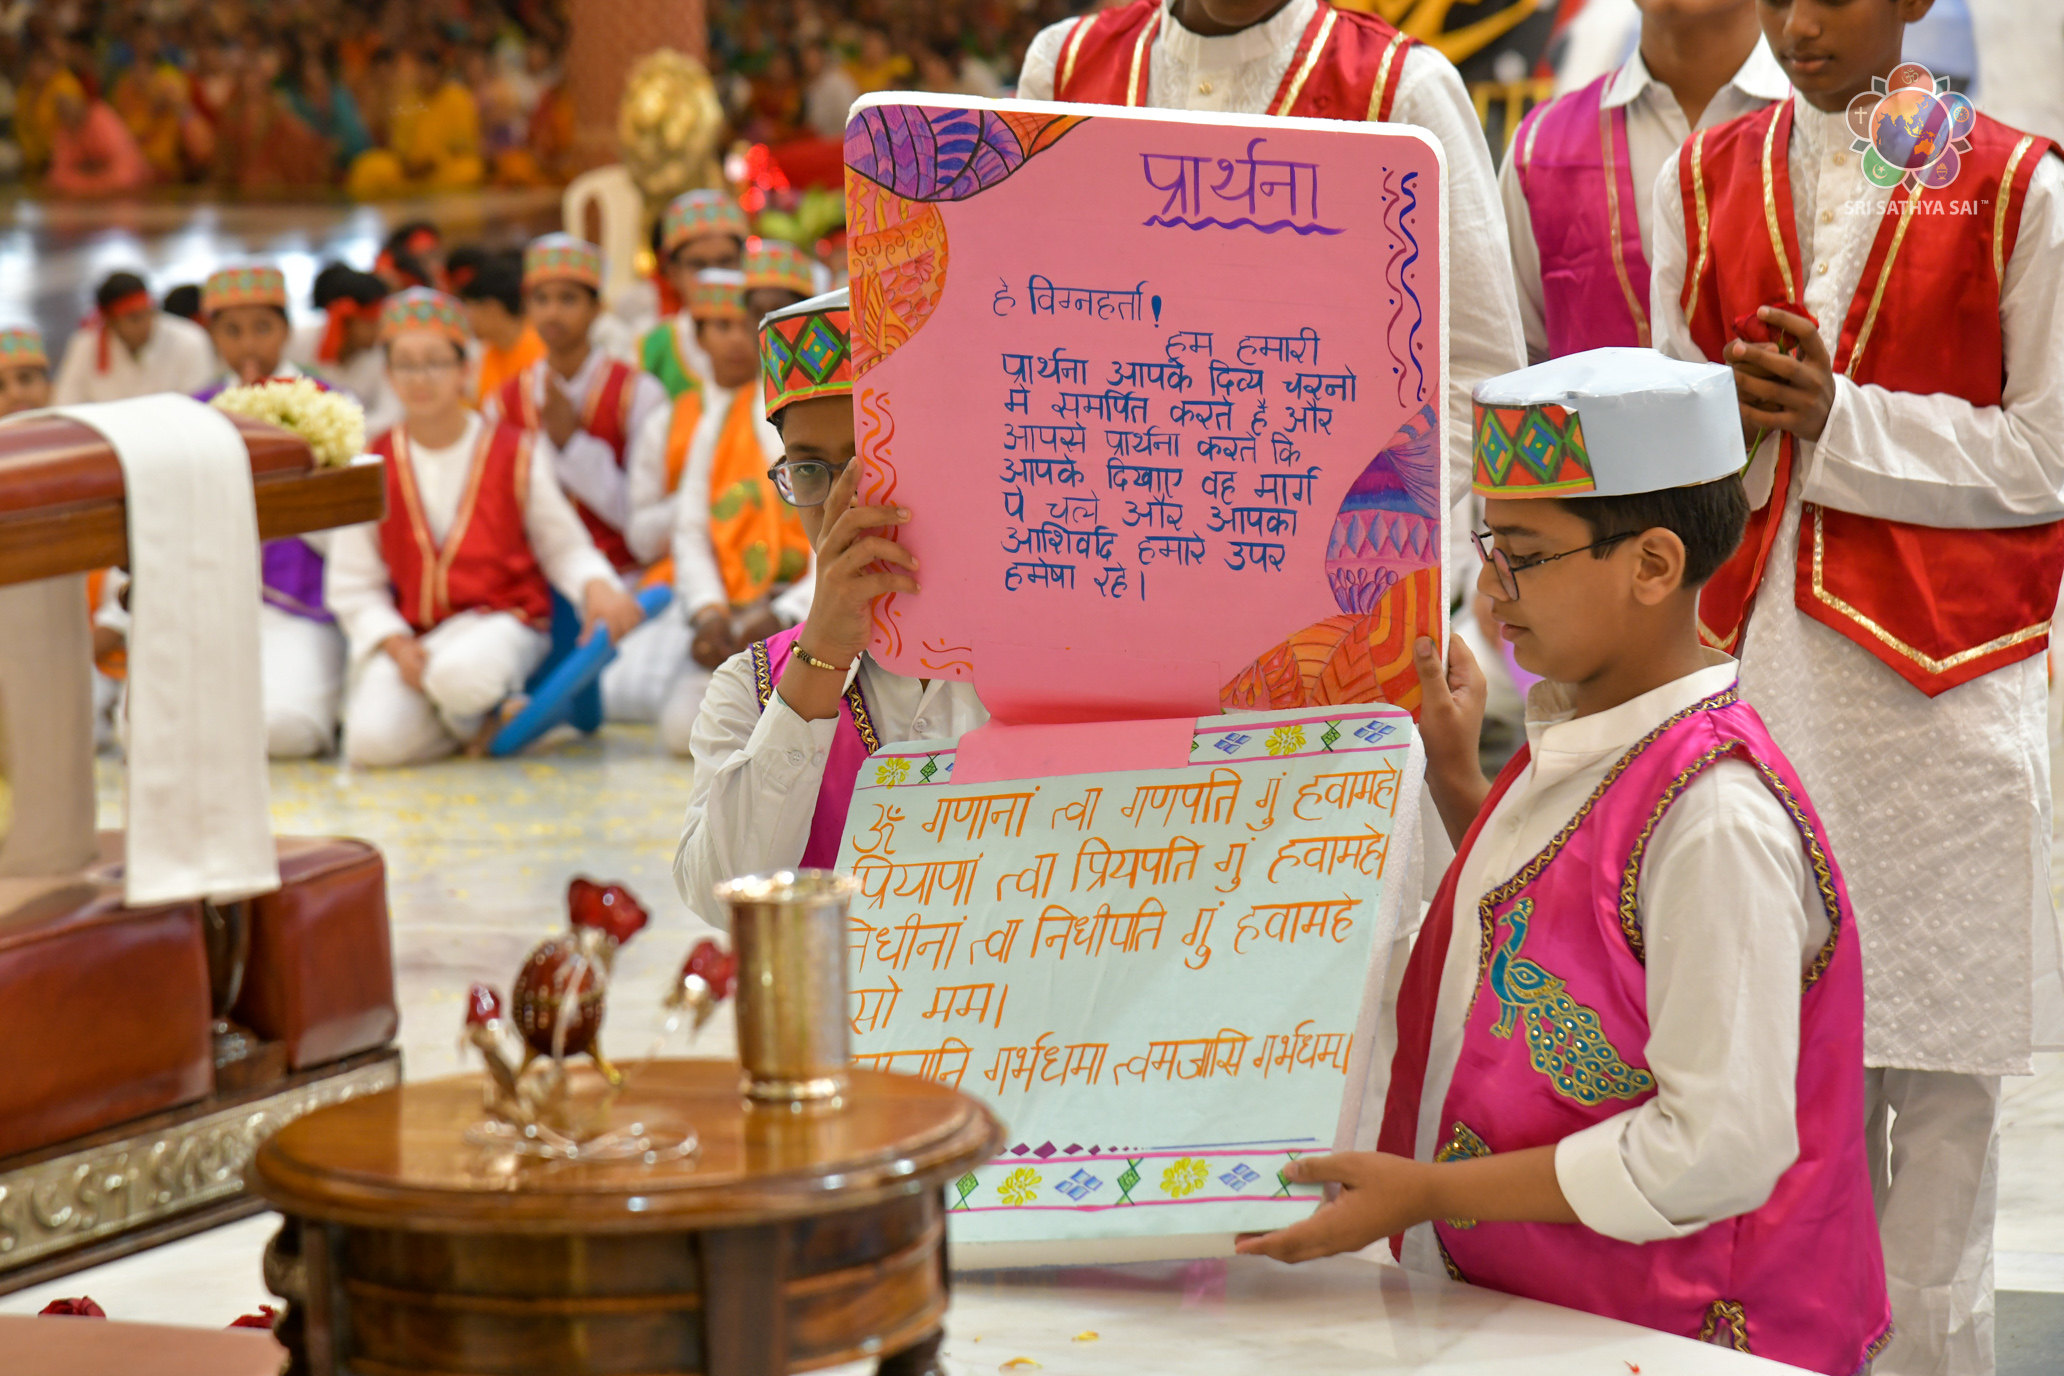 प्रार्थना
हे विग्नहर्ता!
हम हमारी
प्रार्थना आपके दिव्य चरनो
में समर्पित करते हैं और
आपसे प्रार्थना करते कि
आपके दिखाए वह मार्ग
पे चले और आपका
आशिर्वाद हमारे उपर
हमेषा रहे।
ॐ गणानां त्वा गणपति गुं हवामहे।
प्रियाणां त्वा प्रियपति गुं हवामहे।
निधीनां त्वा निधीपति गुं हवामहे
वसो मम।
गर्भधमा त्वमजासि गर्भधम।
SRI SATHYA SAI™